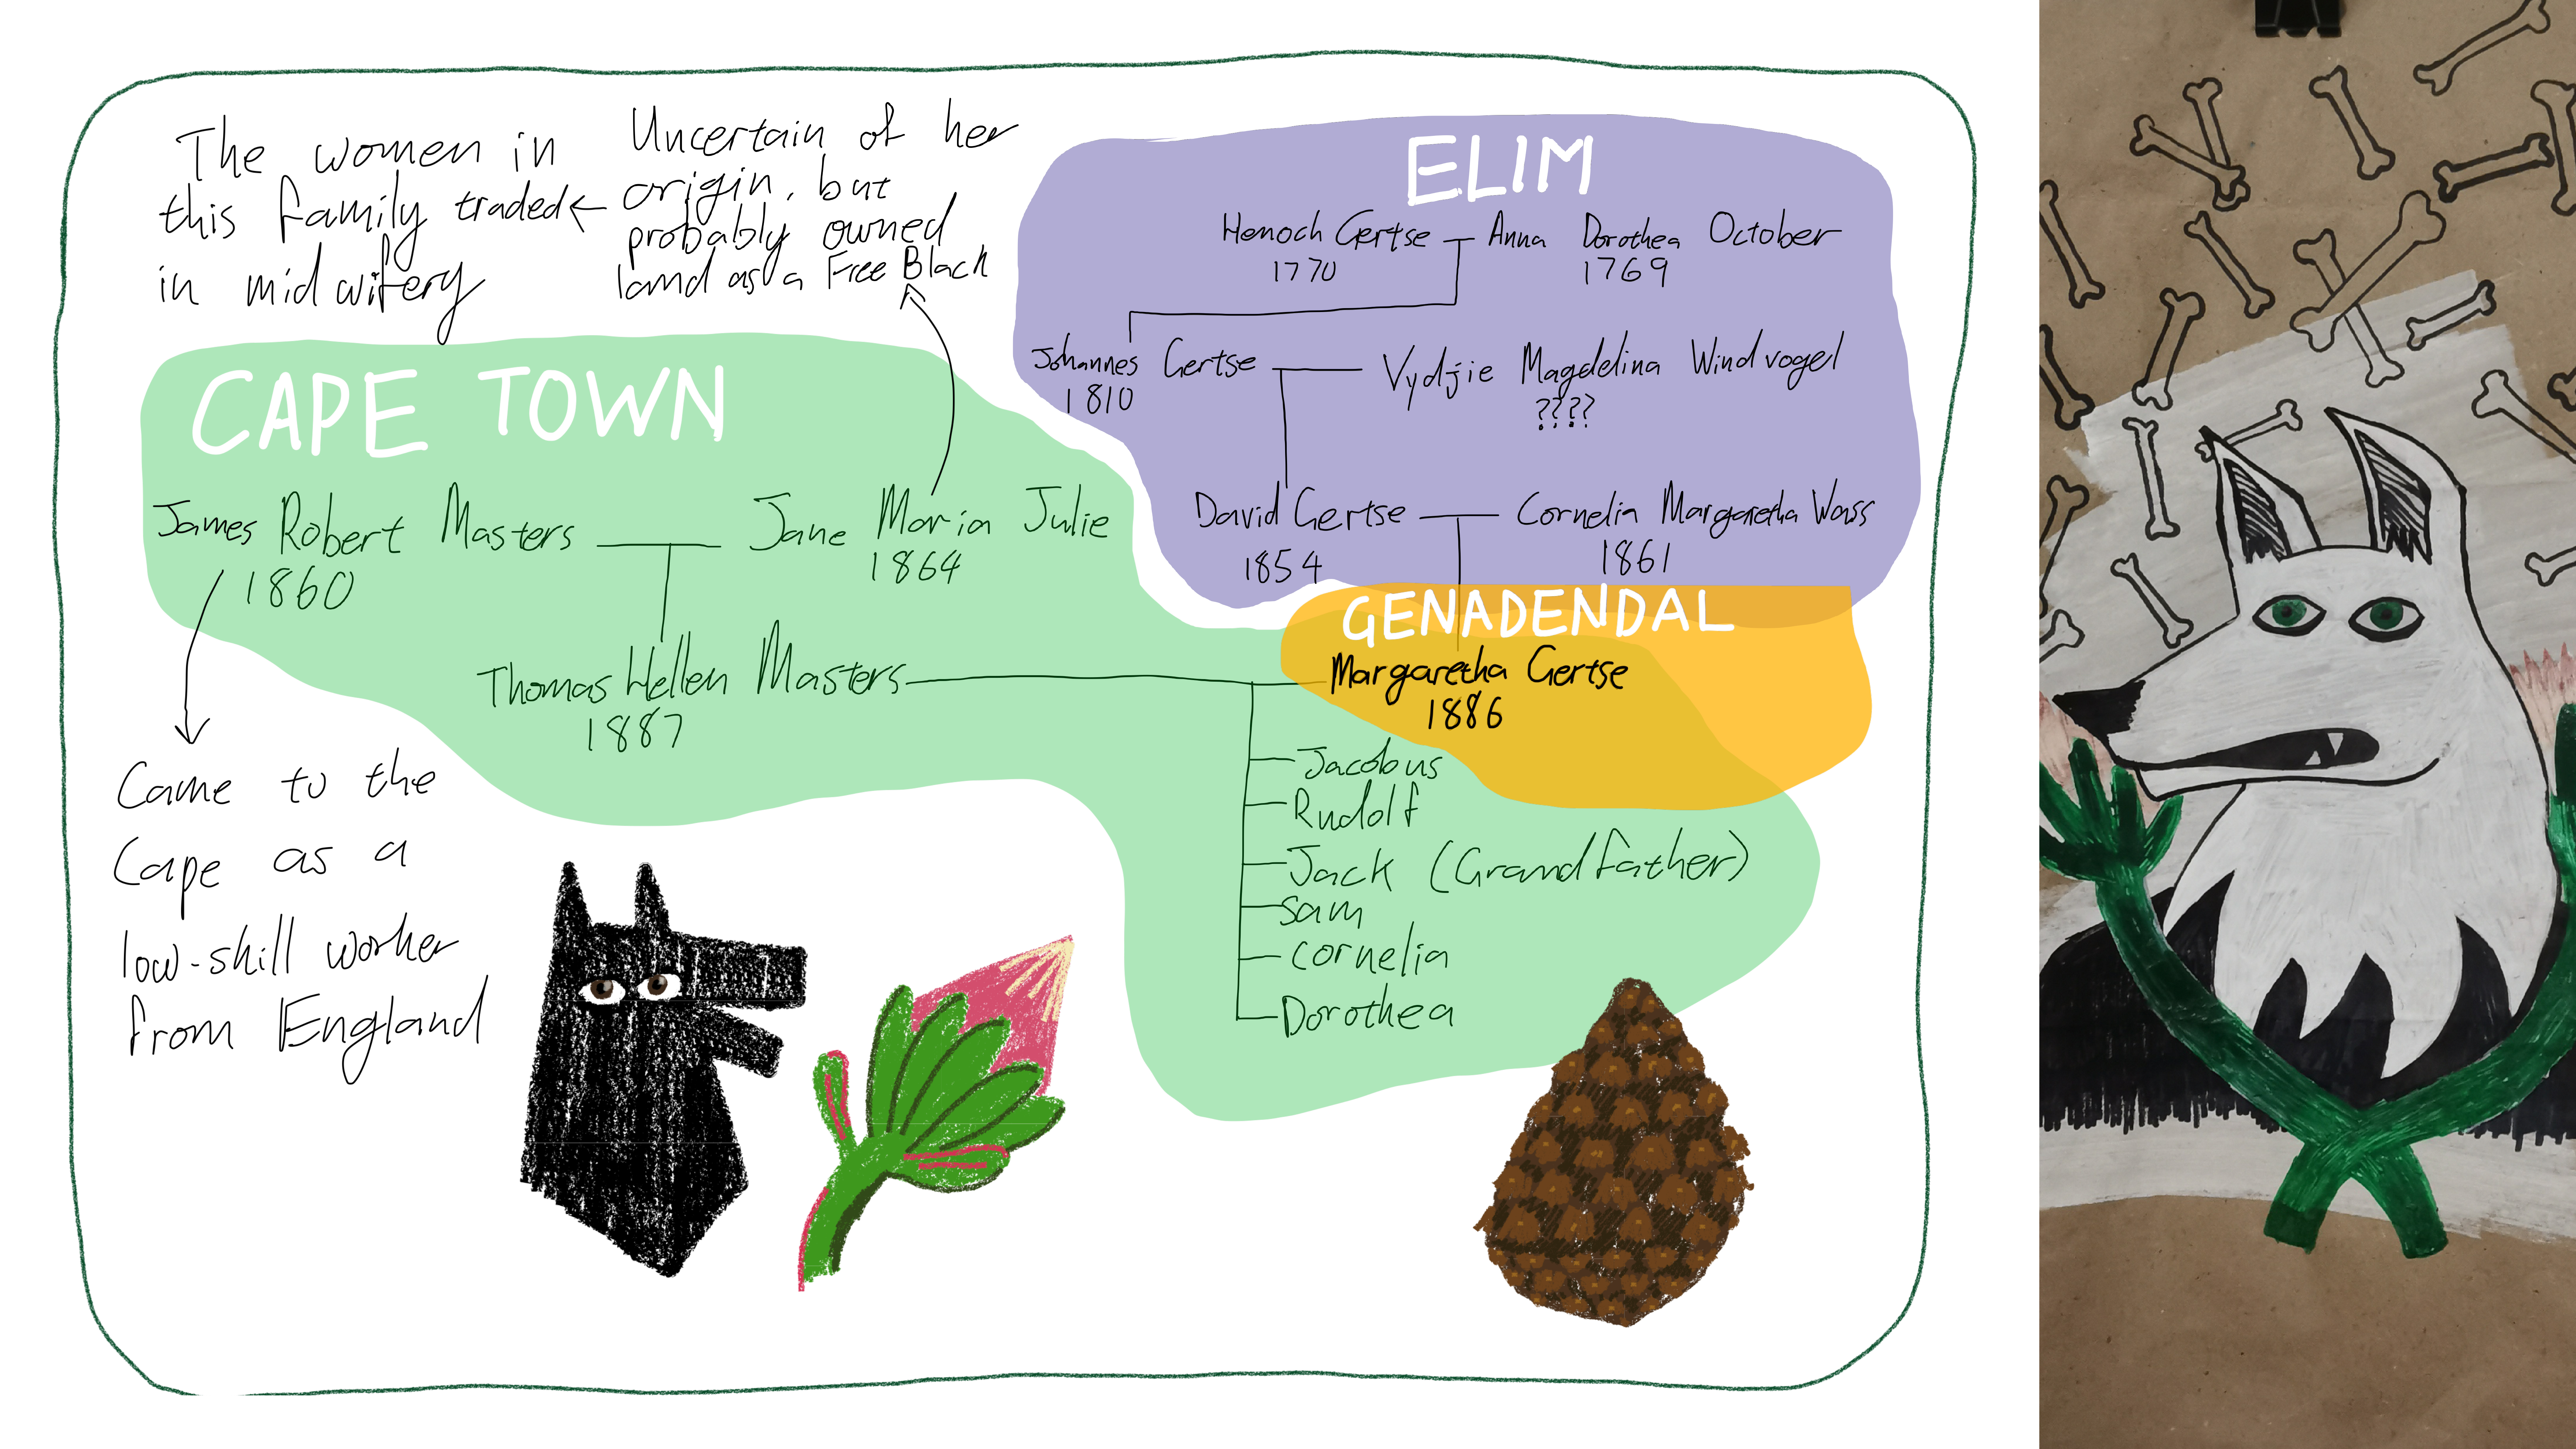 The women in
this family traded
in midwifery
Uncertain of her
origin, but
probably owned
land as a Free Black
ELIM
Henoch Gertse
1770
Anna Dorothea October
1769
Johannes Gertse
1810
Vydjie Magdelina Windvogel
????
David Gertse
1854
Cornelia Margaretha Wass
1861
CAPE TOWN
James Robert Masters
1860
Jane Maria Julie
1864
GENADENDAL
Thomas Hellen Masters
1887
Margaretha Gertse
1886
Jacobus
Rudolf
Jack (Grandfather)
Sam
Cornelia
Dorothea
Came to the
Cape as a
low-skill worker
from England